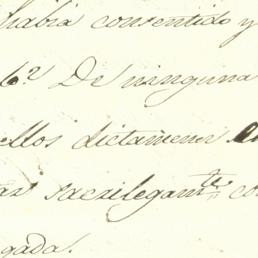 habia consentido y
6.º De ninguna
ellos dictamenes
sacrilegam.te co
gada.